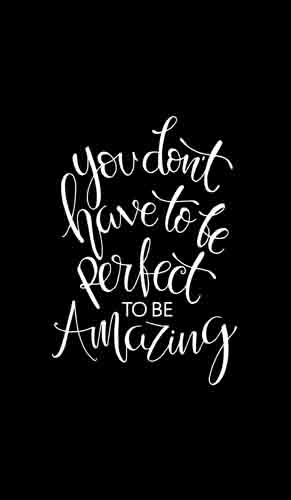 you don't
have to be
perfect
TO BE
Amazing